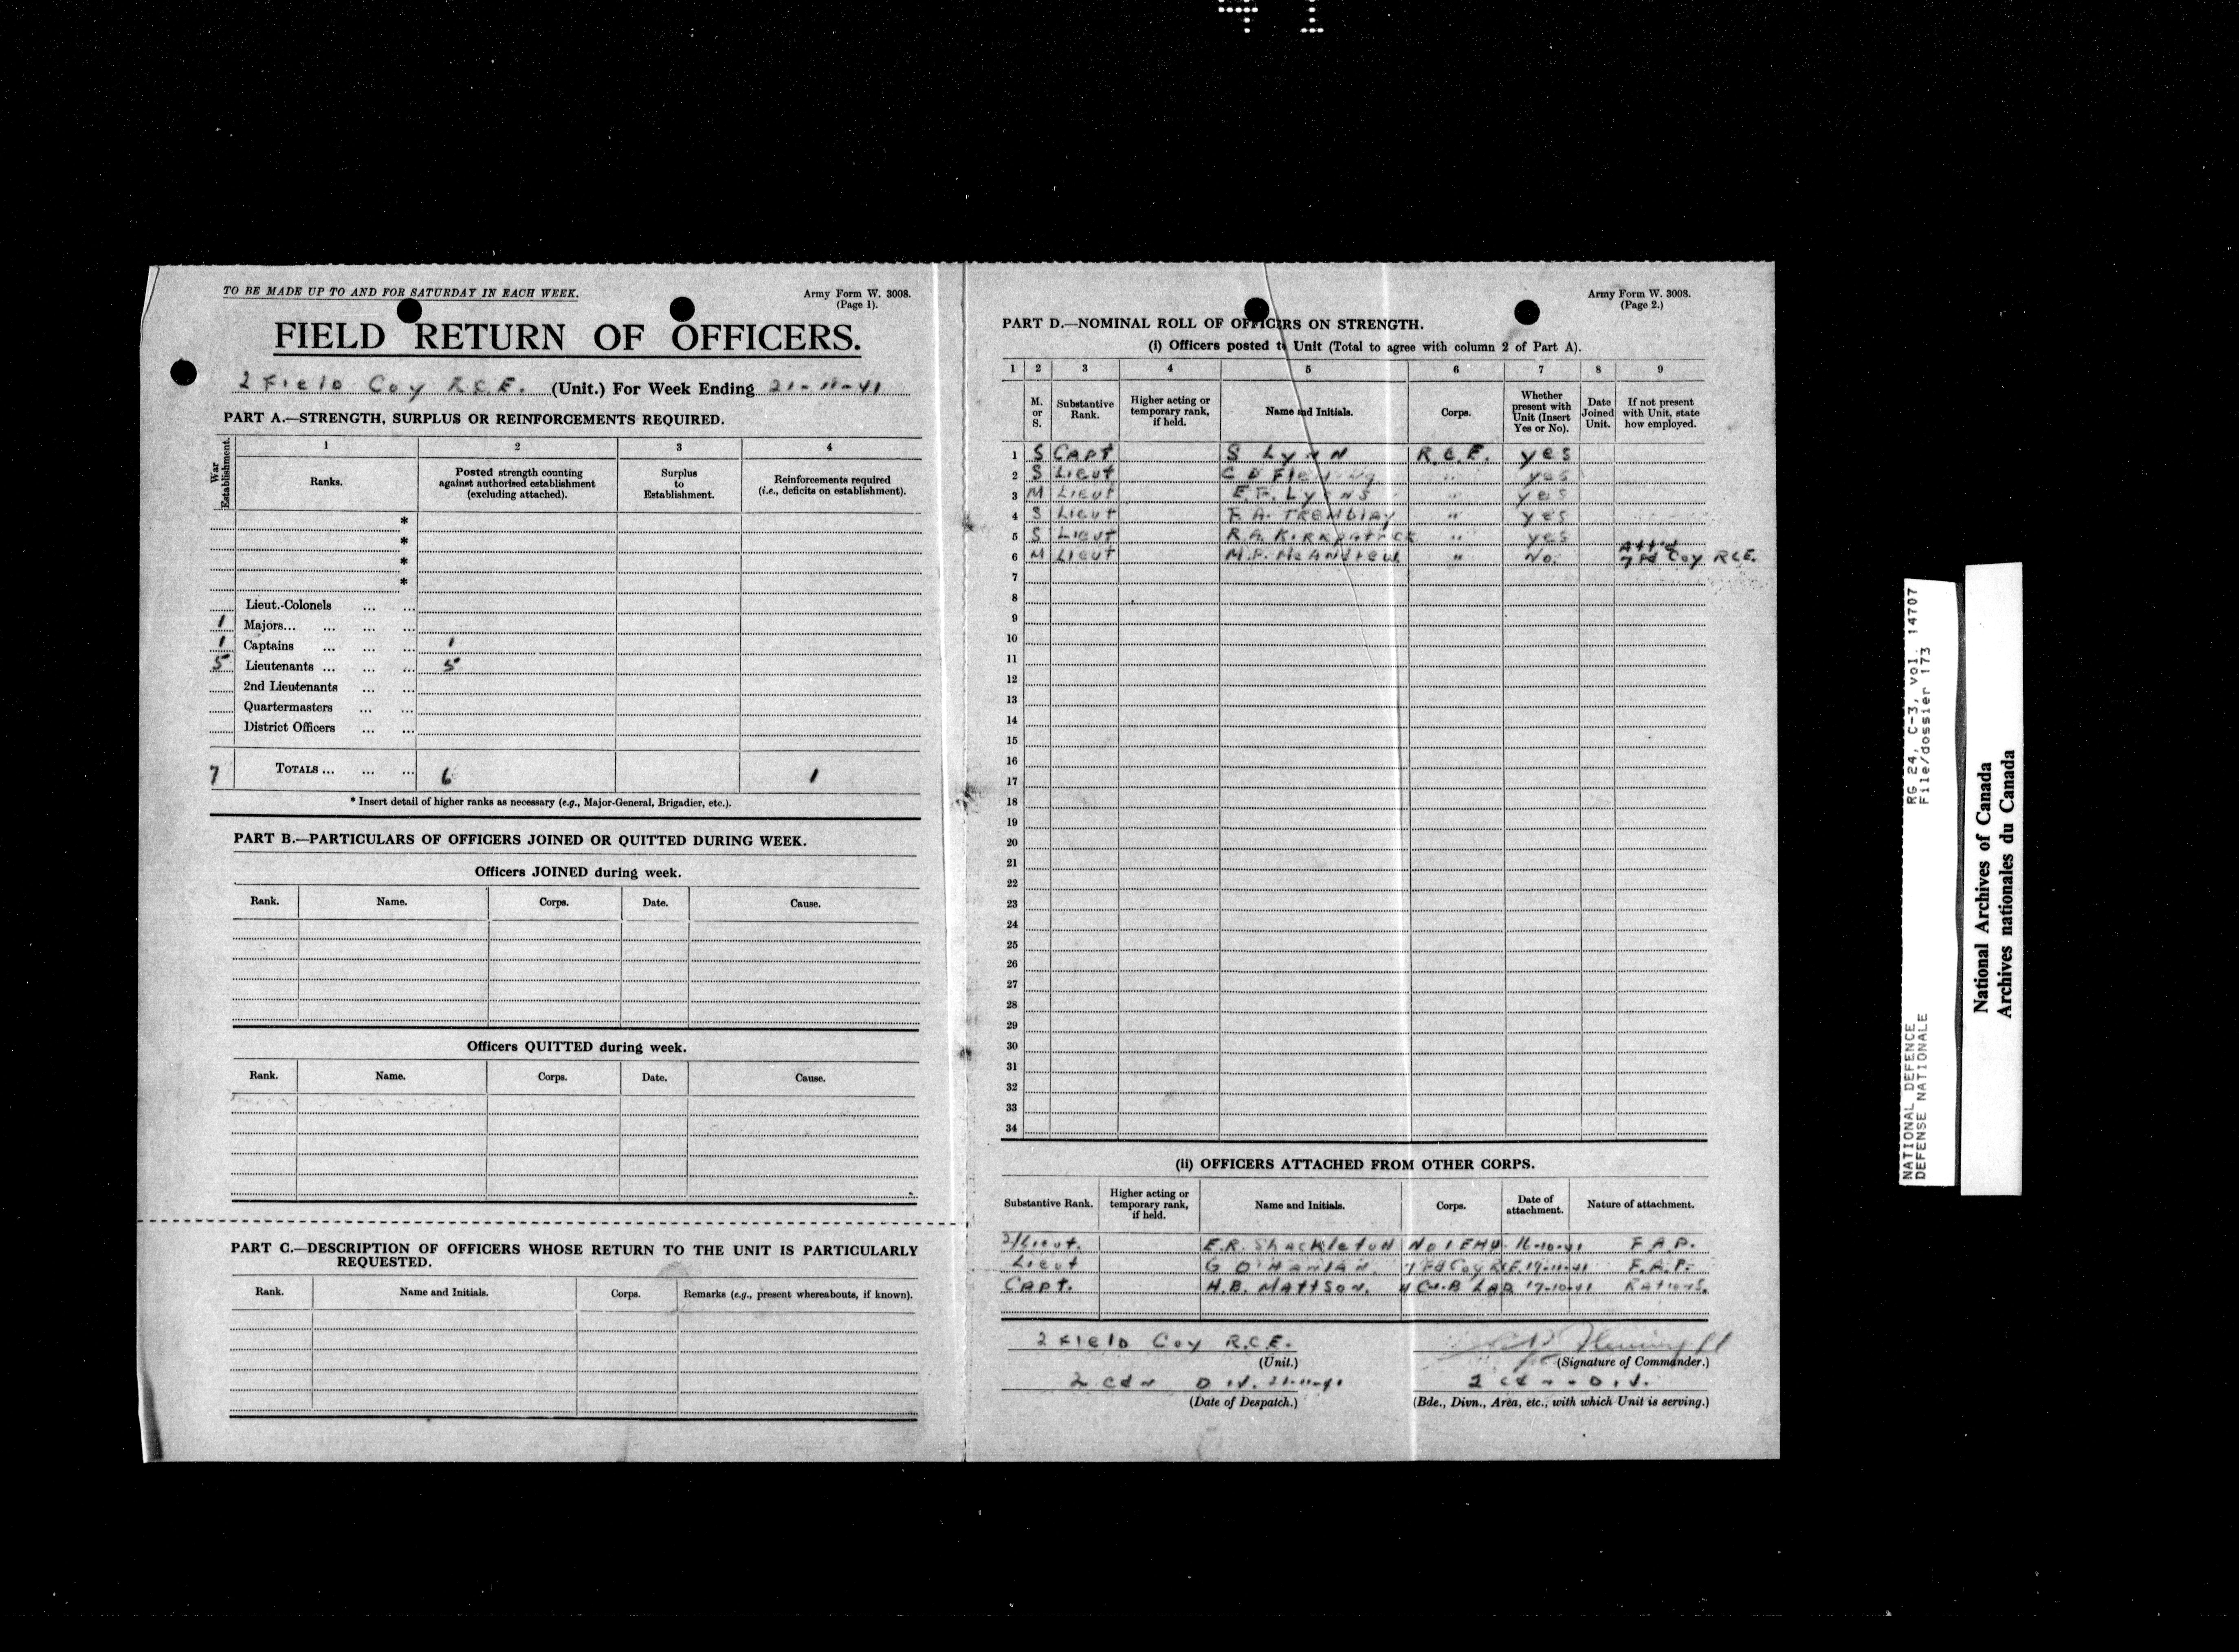 41
TO BE MADE UP TO AND FOR SATURDAY IN EACH WEEK.
Army Form W. 3008.
(Page 1).
FIELD RETURN OF OFFICERS.
2 Field Coy R.C.E. (Unit.) For Week Ending 21-11-41
PART A.—STRENGTH, SURPLUS OR REINFORCEMENTS REQUIRED.
War Establishment.
1 2 3 4
Ranks.
Posted strength counting against authorised establishment (excluding attached).
Surplus to Establishment.
Reinforcements required (i.e., deficits on establishment).
*
*
*
*
Lieut.-Colonels ... ...
1 Majors... ... ... ...
1 Captains ... ... ... 1
5 Lieutenants ... ... ... 5
2nd Lieutenants ... ...
Quartermasters ... ...
District Officers ... ...
7 TOTALS ... ... ... 6 1
* Insert detail of higher ranks as necessary (e.g., Major-General, Brigadier, etc.).
PART B.—PARTICULARS OF OFFICERS JOINED OR QUITTED DURING WEEK.
Officers JOINED during week.
Rank. Name. Corps. Date. Cause.
Officers QUITTED during week.
Rank. Name. Corps. Date. Cause.
PART C.—DESCRIPTION OF OFFICERS WHOSE RETURN TO THE UNIT IS PARTICULARLY
REQUESTED.
Rank. Name and Initials. Corps. Remarks (e.g., present whereabouts, if known).
Army Form W. 3008.
(Page 2.)
PART D.—NOMINAL ROLL OF OFFICERS ON STRENGTH.
(i) Officers posted to Unit (Total to agree with column 2 of Part A).
1 2 3 4 5 6 7 8 9
M. or S.
Substantive Rank.
Higher acting or temporary rank, if held.
Name and Initials.
Corps.
Whether present with Unit (Insert Yes or No).
Date Joined Unit.
If not present with Unit, state how employed.
1 S Capt S Lynn R.C.E. yes
2 S Lieut C D Fleming " yes
3 M Lieut E.F. Lyons " yes
4 S Lieut F.A. Tremblay " yes
5 S Lieut R.A. Kirkpatrick " yes
6 M Lieut M.F. McAndrew " No. Att'd 7 Fd Coy RCE.
7
8
9
10
11
12
13
14
15
16
17
18
19
20
21
22
23
24
25
26
27
28
29
30
31
32
33
34
(ii) OFFICERS ATTACHED FROM OTHER CORPS.
Substantive Rank.
Higher acting or temporary rank, if held.
Name and Initials.
Corps.
Date of attachment.
Nature of attachment.
2/Lieut. E.R. Shackleton No 1 EHU 16-10-41 F.A.P.
Lieut G O'Hanlan 7 Fd Coy RCE 17-11-41 F.A.P.
Capt. H.B. Mattson. LAD 17-10-41 Rations.
2 Field Coy R.C.E.
(Unit.)
CD Fleming Lt
(Signature of Commander.)
2 Cdn Div. 21-11-41
(Date of Despatch.)
2 Cdn. Div.
(Bde., Divn., Area, etc., with which Unit is serving.)
NATIONAL DEFENCE RG 24, C-3, vol. 14707
DEFENSE NATIONALE File/dossier 173
National Archives of Canada
Archives nationales du Canada